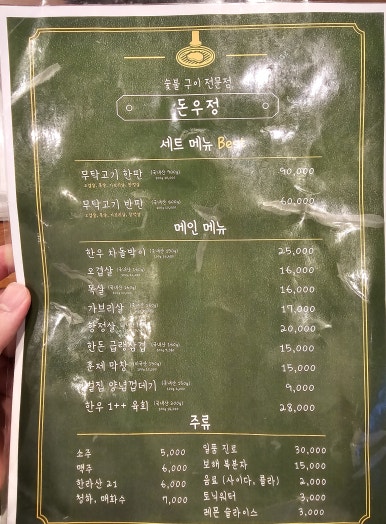 숯불 구이 전문점
돈우정
세트 메뉴 Be
무탁고기 한판 (국내산 900g) 90,000
무탁고기 반판 (국내산 600g) 60,000
메인 메뉴
한우 차돌박이 25,000
오겹살 16,000
목살 16,000
가브리살 17,000
항정살 20,000
한돈 급랭삼겹 15,000
훈제 막창 15,000
벌집 양념껍데기 9,000
한우 1++ 육회 28,000
주류
소주 5,000
맥주 6,000
한라산 21 6,000
청하, 매화수 7,000
일품 진로 30,000
보해 복분자 15,000
음료 (사이다, 콜라) 2,000
토닉워터 3,000
레몬 슬라이스 3,000